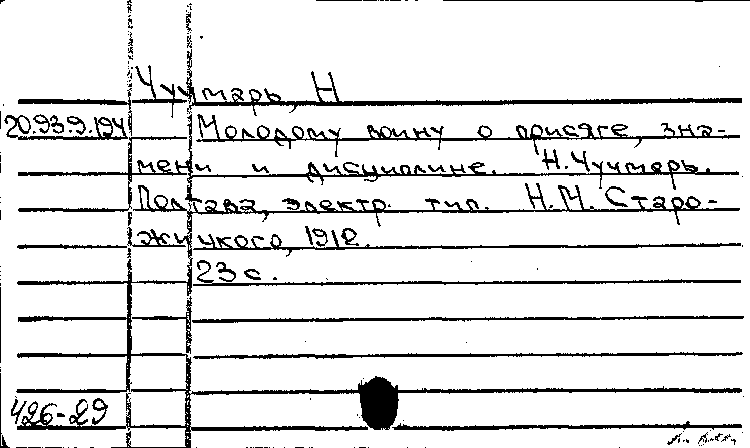 Чуучмарь, Н
20.93.9.194 Молодому воину о присяге, зна-
мени и дисциплине. Н. Чуучмарь.
Полтава, электр. тип. Н.М. Старо-
жицкого, 1912.
23 с.
426-29